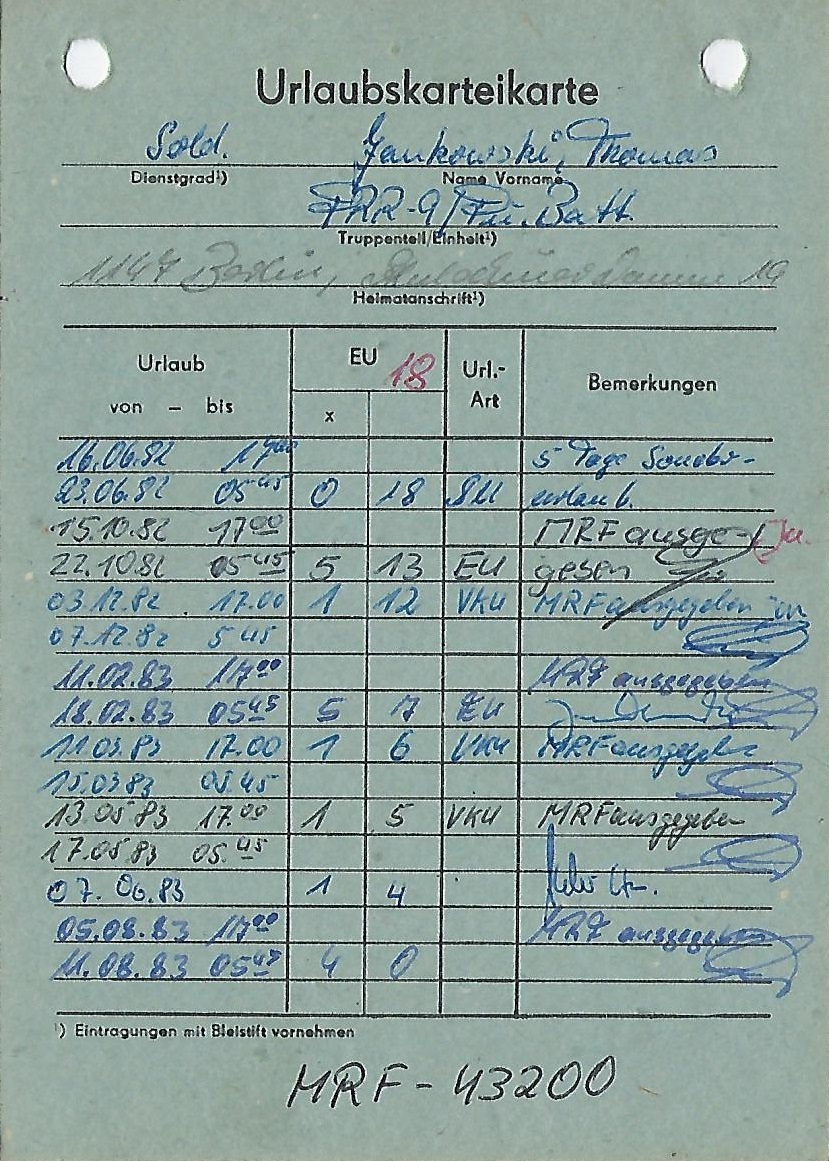 Urlaubskarteikarte
Sold. Jankowski, Thomas
Dienstgrad¹) Name Vorname
FRR-9/Fü.Batt.
Truppenteil/Einheit¹)
1147 Berlin, 19
Heimatanschrift¹)
Urlaub von – bis EU 18 x Url.-Art Bemerkungen
16.06.82 17⁰⁰ 5 Tage Sonder-
23.06.82 05⁴⁵ 0 18 SU urlaub.
15.10.82 17⁰⁰ MRF ausge-
22.10.82 05⁴⁵ 5 13 EU geben
03.12.82 17.00 1 12 VKU MRF ausgegeben
07.12.82 5⁴⁵
11.02.83 17⁰⁰ MRF ausgegeben
18.02.83 05⁴⁵ 5 7 EU
11.03.83 17.00 1 6 VKU MRF ausgegeben
15.03.83 05.45
13.05.83 17.⁰⁰ 1 5 VKU MRF ausgegeben
17.05.83 05.⁴⁵
07.06.83 1 4
05.08.83 17⁰⁰ MRF ausgegeben
11.08.83 05⁴⁵ 4 0
¹) Eintragungen mit Bleistift vornehmen
MRF - 43200